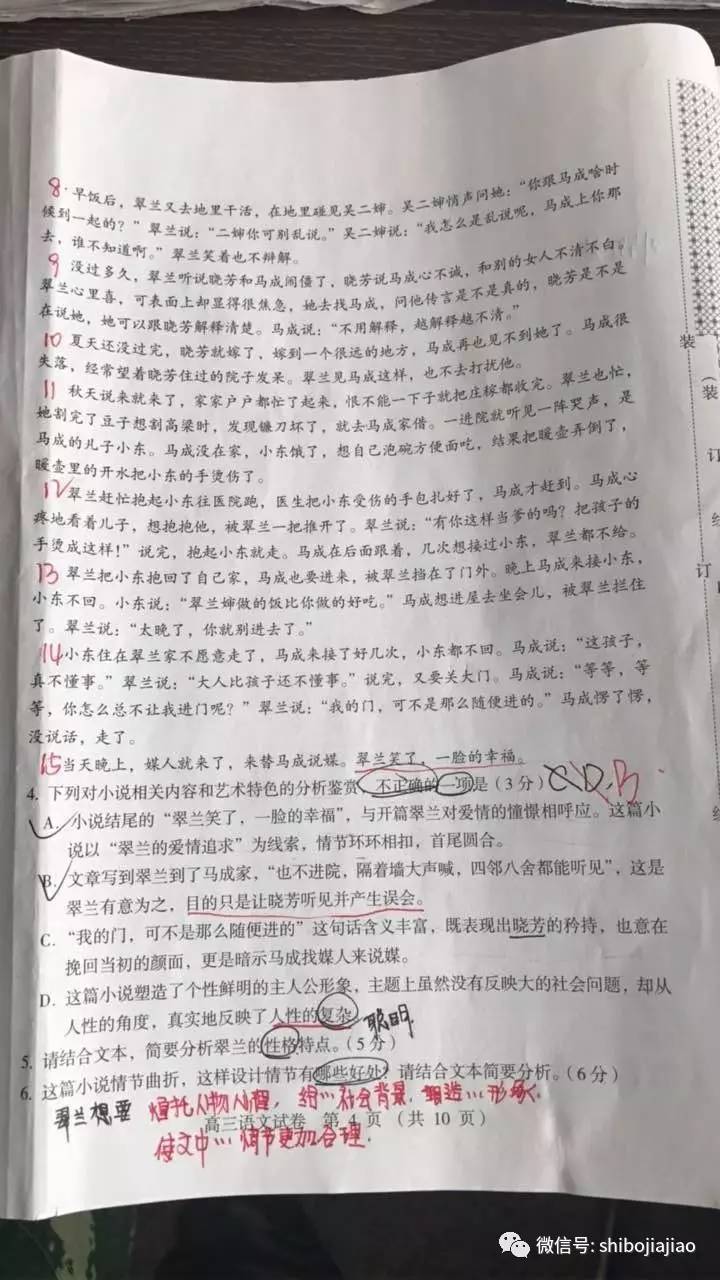 8. 早饭后，翠兰又去地里干活，在地里碰见吴二婶。吴二婶悄声问她：“你跟马成啥时
候到一起的？”翠兰说：“二婶你可别乱说。”吴二婶说：“我怎么是乱说呢，马成上你那
去，谁不知道啊。”翠兰笑着也不辩解。
9 没过多久，翠兰听说晓芳和马成闹僵了，晓芳说马成心不诚，和别的女人不清不白。
翠兰心里喜，可表面上却显得很焦急，她去找马成，问他传言是不是真的，晓芳是不是
在说她，她可以跟晓芳解释清楚。马成说：“不用解释，越解释越不清。”
10 夏天还没过完，晓芳就嫁了，嫁到一个很远的地方，马成再也见不到她了。马成很
失落，经常望着晓芳住过的院子发呆。翠兰见马成这样，也不去打扰他。
11 秋天说来就来了，家家户户都忙了起来，恨不能一下子就把庄稼都收完。翠兰也忙，
她割完了豆子想割高粱时，发现镰刀坏了，就去马成家借。一进院就听见一阵哭声，是
马成的儿子小东。马成没在家，小东饿了，想自己泡碗方便面吃，结果把暖壶弄倒了，
暖壶里的开水把小东的手烫伤了。
12 翠兰赶忙抱起小东往医院跑，医生把小东受伤的手包扎好了，马成才赶到。马成心
疼地看着儿子，想抱抱他，被翠兰一把推开了。翠兰说：“有你这样当爹的吗？把孩子的
手烫成这样！”说完，抱起小东就走。马成在后面跟着，几次想接过小东，翠兰都不给。
13 翠兰把小东抱回了自己家，马成也要进来，被翠兰挡在了门外。晚上马成来接小东，
小东不回。小东说：“翠兰婶做的饭比你做的好吃。”马成想进屋去坐会儿，被翠兰拦住
了。翠兰说：“太晚了，你就别进去了。”
14 小东住在翠兰家不愿意走了，马成来接了好几次，小东都不回。马成说：“这孩子，
真不懂事。”翠兰说：“大人比孩子还不懂事。”说完，又要关大门。马成说：“等等，等
等，你怎么总不让我进门呢？”翠兰说：“我的门，可不是那么随便进的。”马成愣了愣，
没说话，走了。
15 当天晚上，媒人就来了，来替马成说媒。翠兰笑了，一脸的幸福。
4. 下列对小说相关内容和艺术特色的分析鉴赏，不正确的一项是（3分）C D B
A. 小说结尾的“翠兰笑了，一脸的幸福”，与开篇翠兰对爱情的憧憬相呼应。这篇小
说以“翠兰的爱情追求”为线索，情节环环相扣，首尾圆合。
B. 文章写到翠兰到了马成家，“也不进院，隔着墙大声喊，四邻八舍都能听见”，这是
翠兰有意为之，目的只是让晓芳听见并产生误会。
C. “我的门，可不是那么随便进的”这句话含义丰富，既表现出晓芳的矜持，也意在
挽回当初的颜面，更是暗示马成找媒人来说媒。
D. 这篇小说塑造了个性鲜明的主人公形象，主题上虽然没有反映大的社会问题，却从
人性的角度，真实地反映了人性的复杂。
聪明
5. 请结合文本，简要分析翠兰的性格特点。（5分）
6. 这篇小说情节曲折，这样设计情节有哪些好处？请结合文本简要分析。（6分）
翠兰想要
社会背景
高三语文试卷 第 4 页 （共 10 页）
使文中…情节更加合理.
装
（装
订
线
订
微信号: shibojiajiao